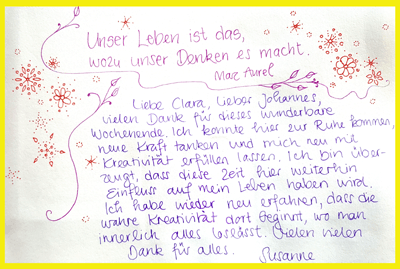 Unser Leben ist das,
wozu unser Denken es macht.
Marc Aurel
Liebe Clara, lieber Johannes,
vielen Dank für dieses wunderbare
Wochenende. Ich konnte hier zur Ruhe kommen,
neue Kraft tanken und mich neu mit
Kreativität erfüllen lassen. Ich bin über-
zeugt, dass diese Zeit hier weiterhin
Einfluss auf mein Leben haben wird.
Ich habe wieder neu erfahren, dass die
wahre Kreativität dort beginnt, wo man
innerlich alles loslässt. Vielen vielen
Dank für alles. Susanne